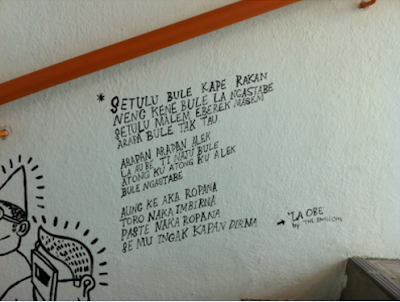 * SETULU BULE KAPE RAKAN
NENG KENE BULE LA NGASTABE
SETULU MALEM EBEREK MASEM
ARAPA BULE TAK TAU
ARAPAN ARAPAN ALEK
LA AU BE TI NATU BULE
ATONG KU ATONG KU ALEK
BULE NGASTABE
AUNG KE AKA ROPANA
TORO NAKA IMBIRNA
PASTE NAKA ROPANA
SE MU INGAK KAPAN DIRNA
→ "LA OBE"
by THE